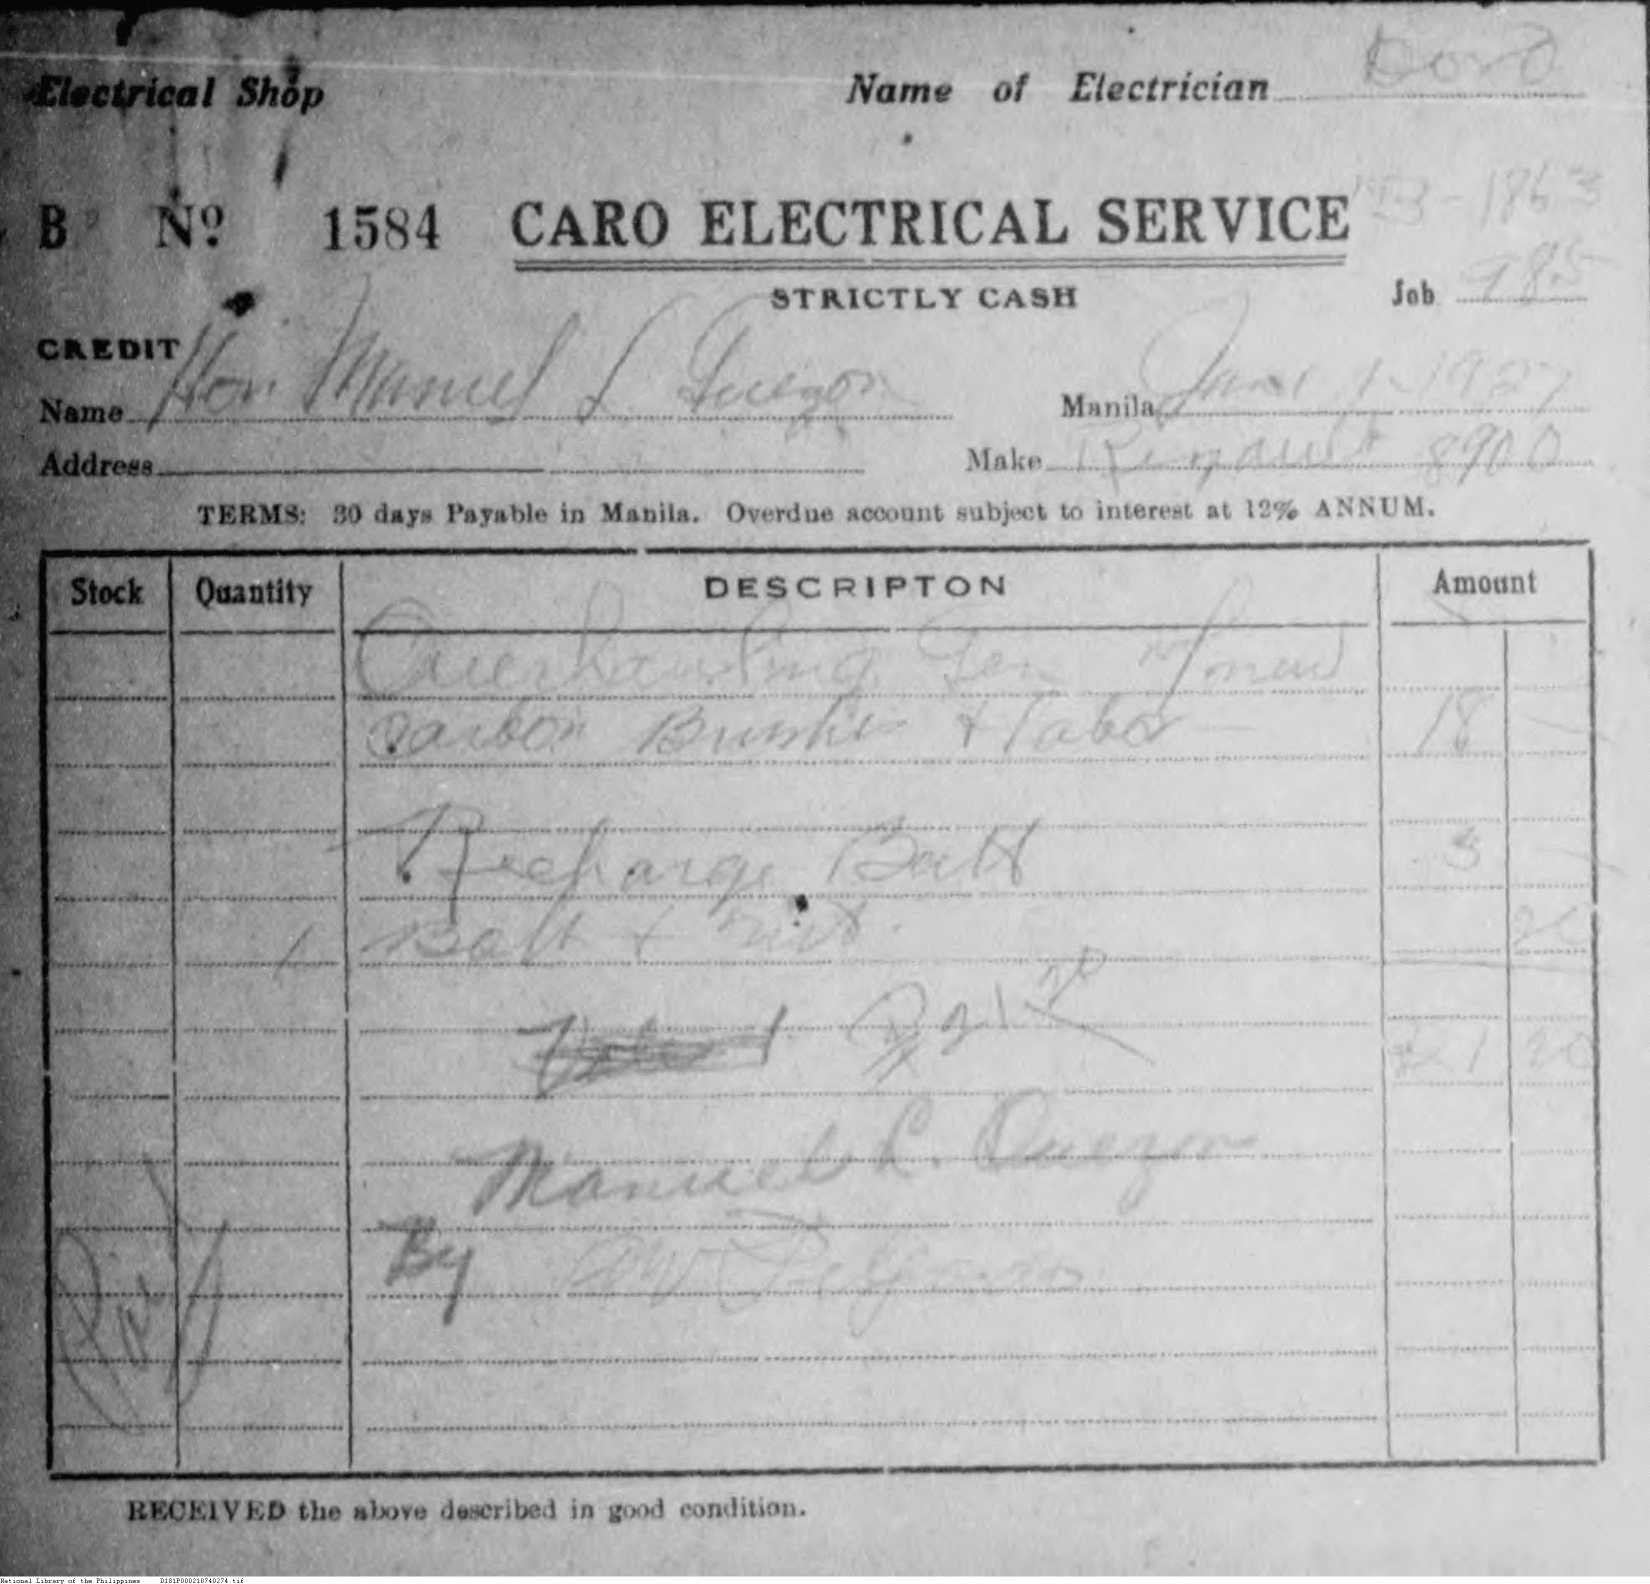 Electrical Shop Name of Electrician
B No 1584 CARO ELECTRICAL SERVICE
STRICTLY CASH Job 985
CREDIT
Name Hon Manuel L Quezon Manila 1927
Address Make 8900
TERMS: 30 days Payable in Manila. Overdue account subject to interest at 12% ANNUM.
Stock Quantity DESCRIPTON Amount
Overhauling Gen
Carbon Brushes + labor 18
Recharge Batt 3
1 Bolt + nut. 20
₱21 20
21 20
Manuel L. Quezon
By
RECEIVED the above described in good condition.
National Library of the Philippines D181P000210740274.tif